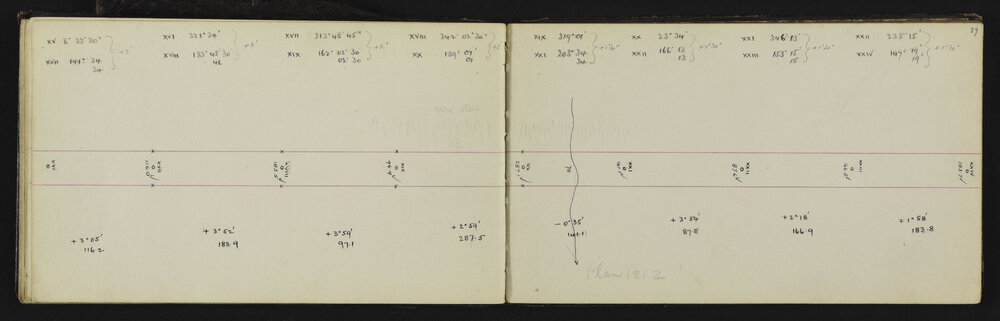 29
XV 8° 33' 30"
XVII 141° 34
34
+2'
XVI 321° 34'
XVIII 135° 45' 30
46
+2'
XVII 313° 45' 45"
XIX 162° 02' 30
02' 30
+2'
XVIII 342° 02' 30"
XX 139° 09'
09
XIX 319° 09'
XXI 203° 34'
34
+1'30"
XX 23° 34'
XXII 166° 13
13
+1'30"
XXI 346° 13'
XXIII 153° 15'
15
+1'30"
XXII 333° 15'
XXIV 147° 19'
19'
+1'30"
XVI
XVII
XVIII
XIX
XX
70
XXI
XXII
XXIII
XXIV
+ 3° 05'
116.2
+ 3° 52'
183.9
+ 3° 59'
97.1
+ 2° 59'
287.5
– 0° 35'
+ 3° 54'
87.8
+ 2° 18'
166.9
+ 1° 58'
183.8
Plan 1812